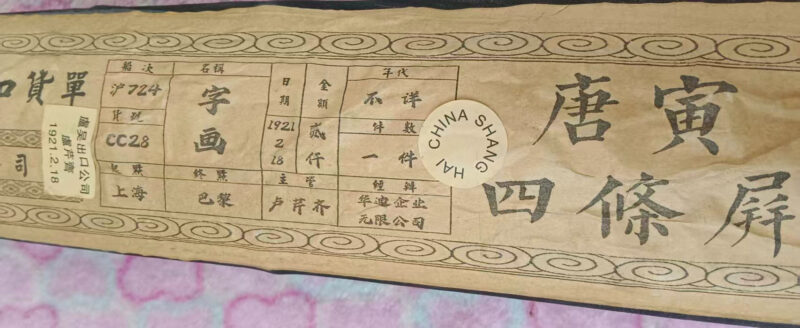 口貨單
司
盧吴出口公司
盧芹齋
1921.2.18
船次
沪724
CC28
上海
名稱
字画
终點
巴黎
日期
1921
2
18
金額
貳仟
主管
卢芹齐
年代
不详
件数
一件
經辦
企业
无限公司
CHINA SHANG HAI
唐寅
四條屏